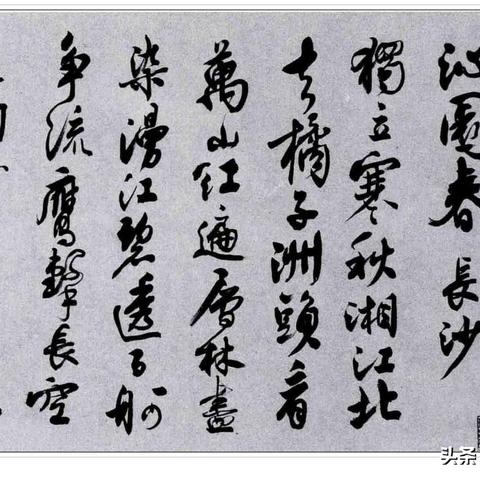 沁園春 長沙
獨立寒秋湘江北
去橘子洲頭看
萬山红遍層林盡
染漫江碧透百舸
争流鷹擊長空
头条